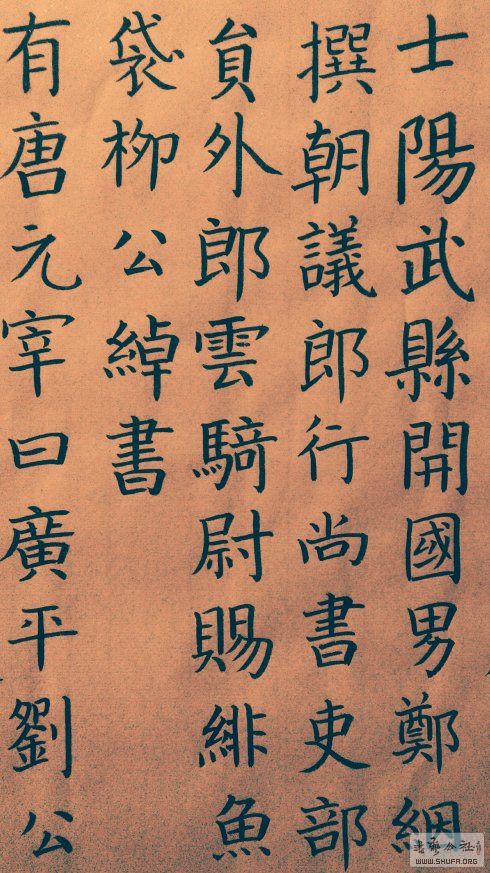 士陽武縣開國男鄭絪
撰朝議郎行尚書吏部
貟外郎雲騎尉賜緋魚
袋柳公綽書
有唐元宰曰廣平劉公
WWW.SHUFA.ORG